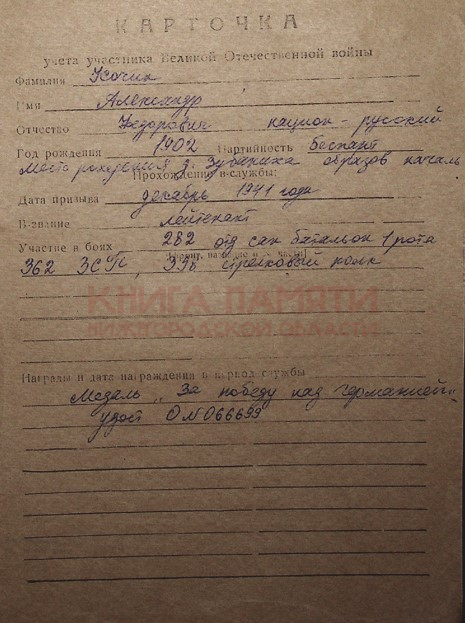 КАРТОЧКА
учета участника Великой Отечественной войны
Фамилия Усочин
Имя Александр
Отчество Федорович национ - русский
Год рождения 1902 Партийность беспарт
место рождения д. Зубаниха образов началь
Прохождения службы:
Дата призыва декабрь 1941 года
В-звание лейтенант
Участие в боях 282 отд сап батальон 1 рота
362 ЗСП, 398 стрелковый полк
КНИГА ПАМЯТИ
НИЖЕГОРОДСКОЙ ОБЛАСТИ
Награды и дата награждения в период службы
Медаль "За победу над Германией"
удост ОN066699